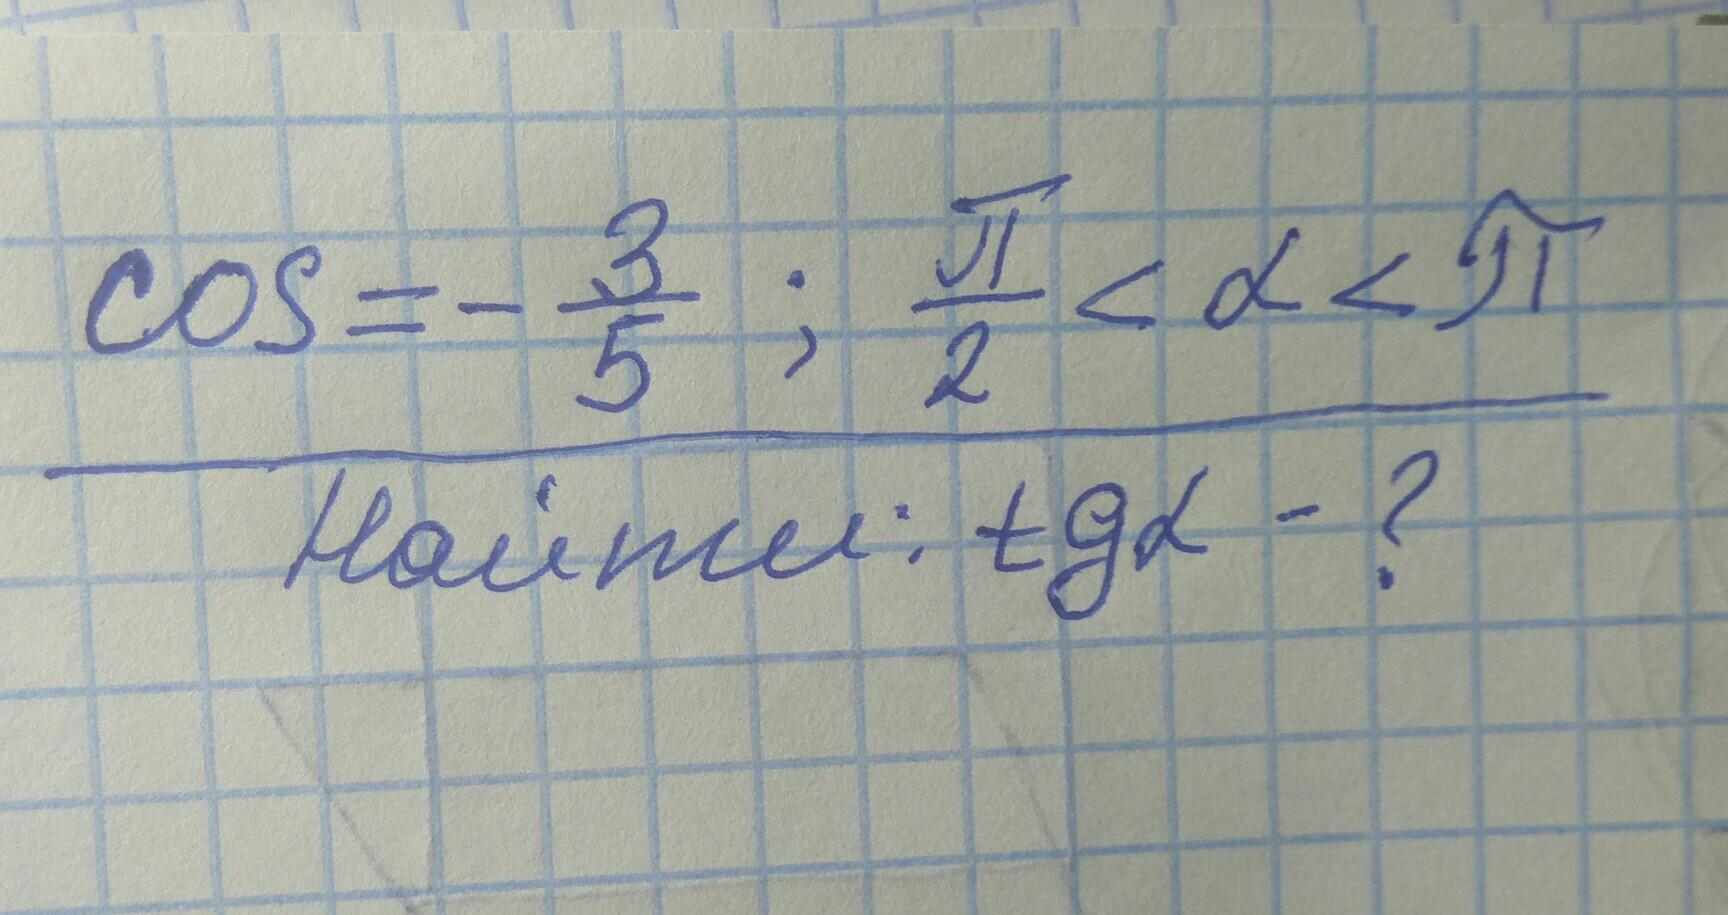 cos = - 3/5 ; π/2 < α < π
Найти: tgα - ?